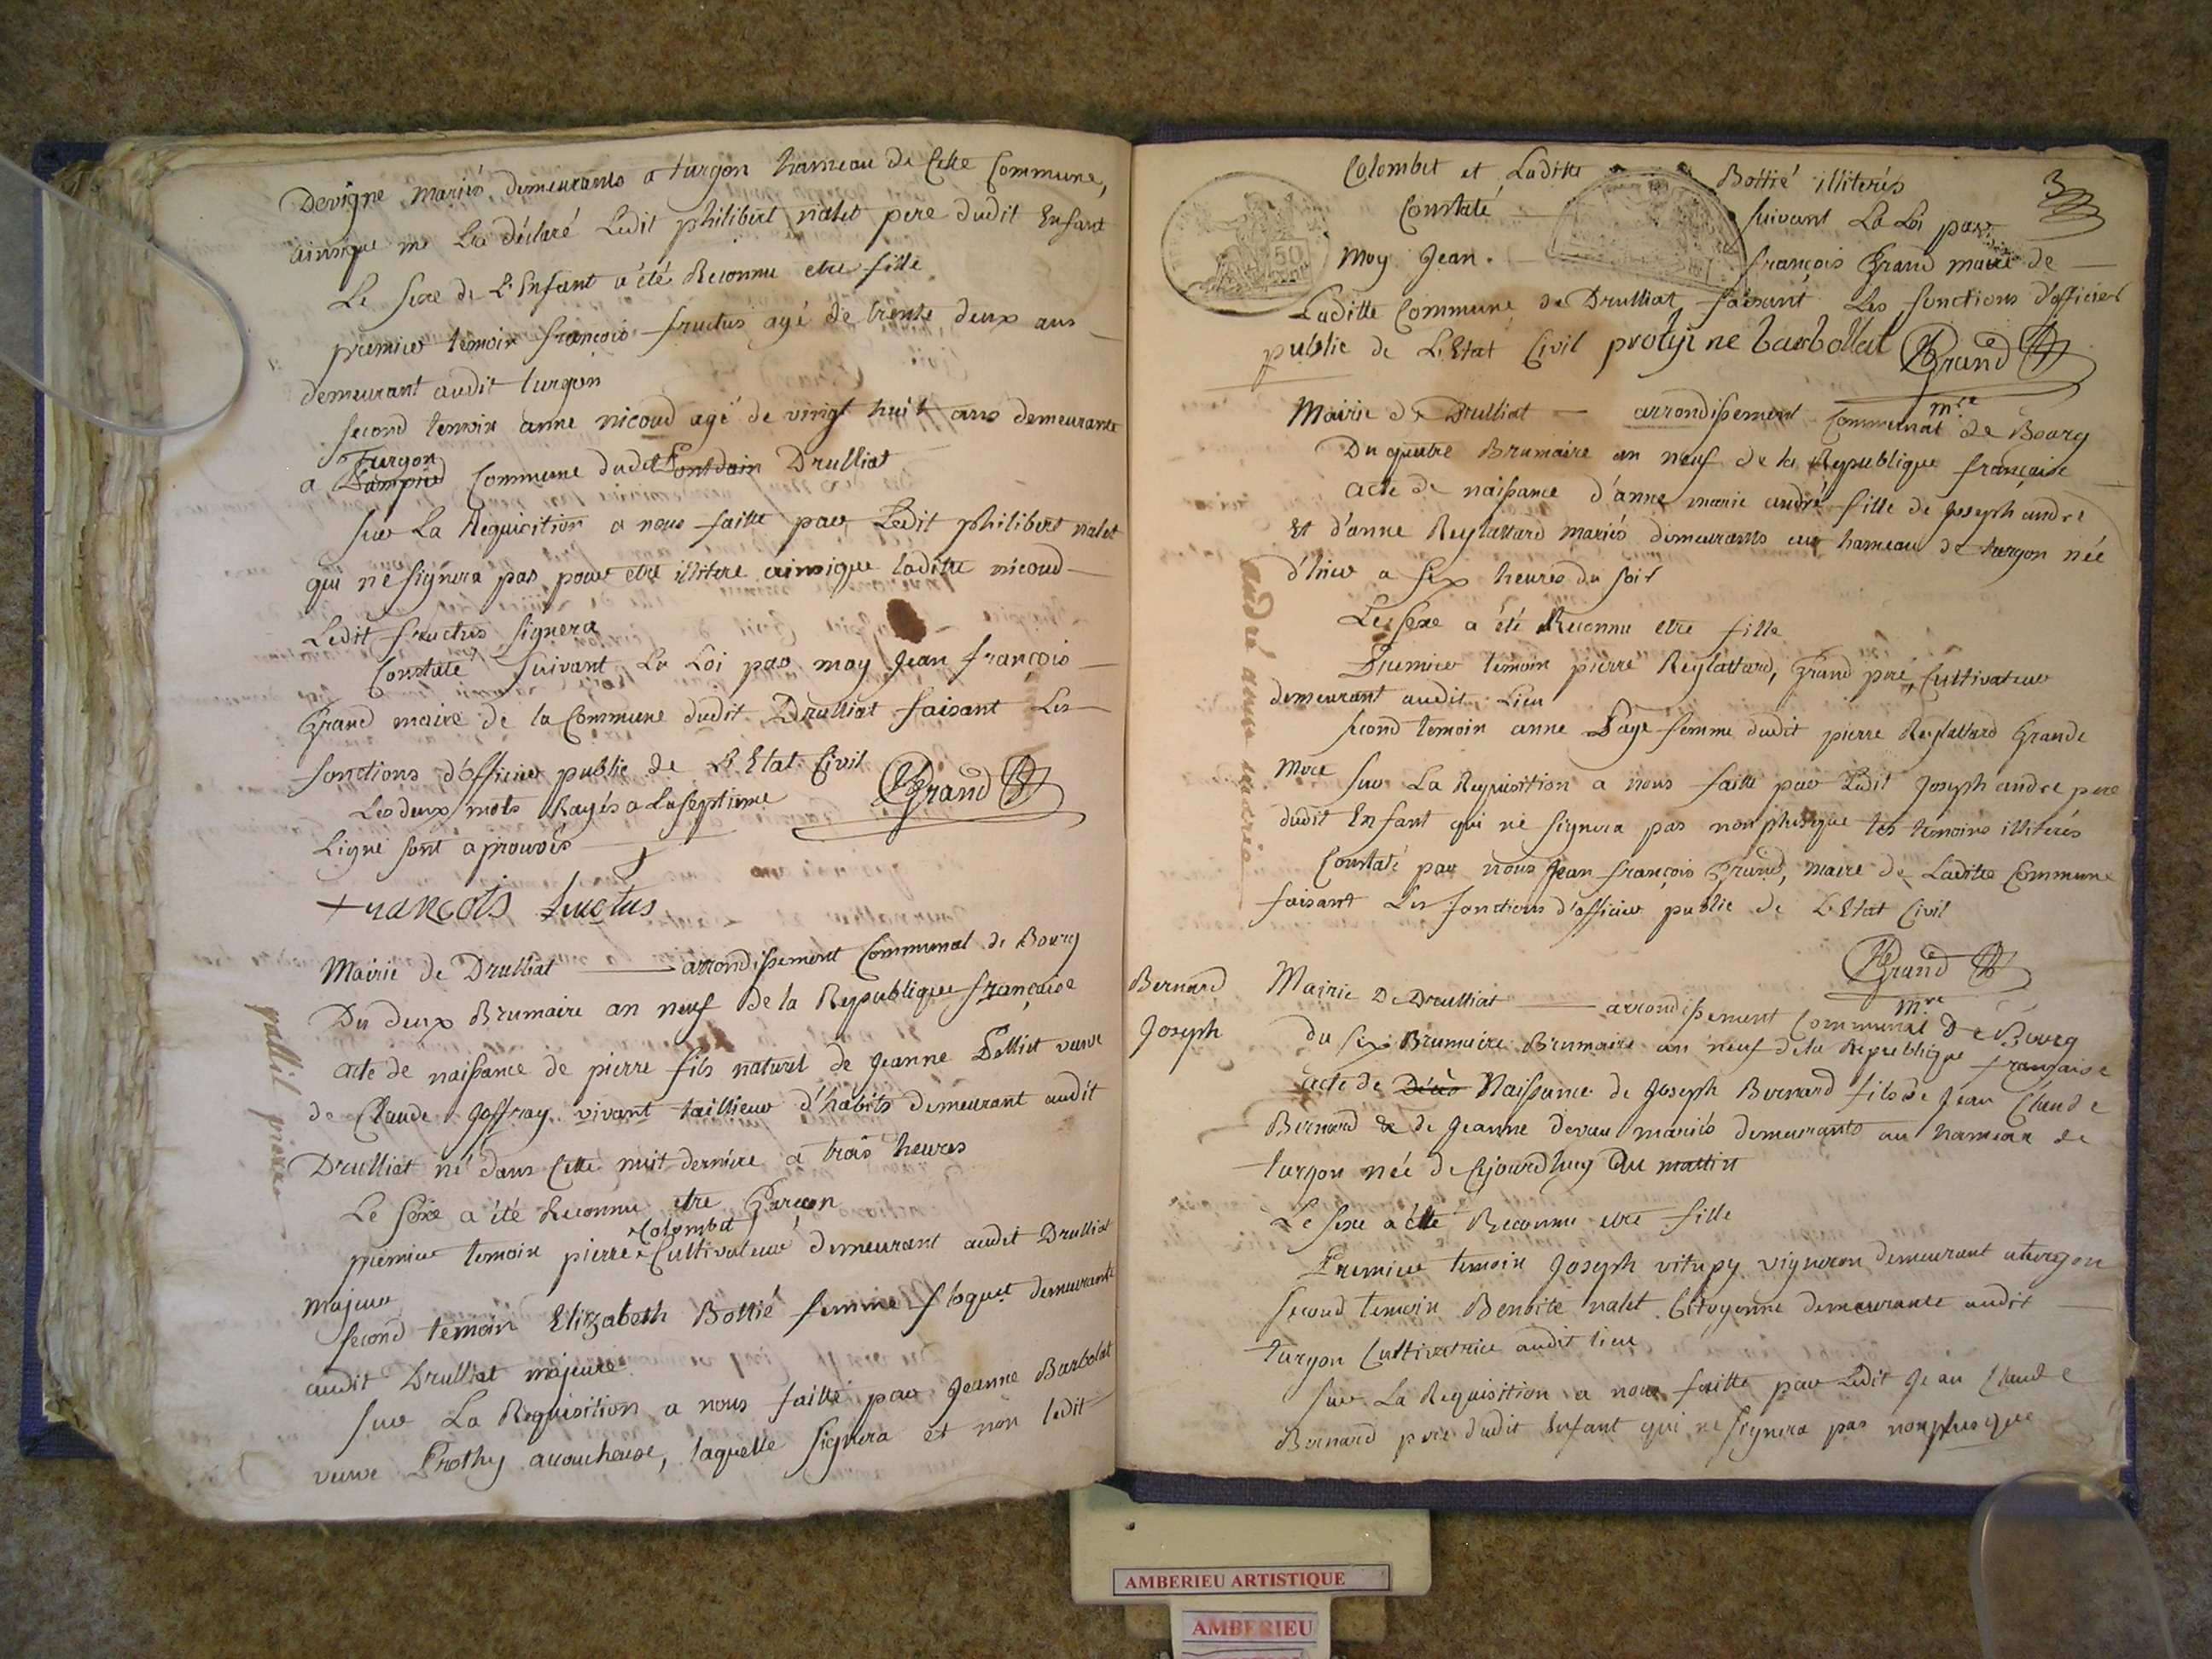 Devigne mariés demeurants a turgon hameau de Cette Commune,
ainsique me La déclaré Ledit philibert nalet pere dudit Enfant
Le sexe de L'Enfant a été Reconnu etre fille
premier temoin françois fructus agé de trente deux ans
demeurant audit turgon
second temoin anne nicoud agé de vingt huit ans demeurante
Turgon
a Dampied Commune dudit Pontdain Drulliat
sur La Requisition a nous faitte par Ledit philibert nalet
qui ne signera pas pour etre illitere ainsique laditte nicoud
Ledit fructus signera
Constaté suivant La Loi par moy Jean françois
Grand maire de la Commune dudit Drulliat faisant Les
fonctions d'officier public de L'Etat Civil
Les deux mots Rayés a La septieme
Grand
Ligne sont aprouvés
francois fructus
Mairie de Drulliat arrondissement Communal de Bourg
Du deux Brumaire an neuf de la Republique française
acte de naissance de pierre fils naturel de Jeanne Pelliet veuve
de Claude Joffray vivant taillieur d'habits demeurant audit
Drulliat né dans Cette nuit derniere a trois heures
Le sexe a été Reconnu etre Garçon
Colombet
premier temoin pierre Cultivateur demeurant audit Drulliat
majeur
second temoin Elizabeth Bottié femme floquet demeurante
audit Drulliat majeure
sur La Requisition a nous faitte par Jeanne Barbolat
veuve Prothy accoucheuse, laquelle signera et non ledit
Colombet et Laditte Bottié illiterés
3
Constaté suivant La Loi par
50
Moy Jean françois Grand maire de
Laditte Commune de Drulliat faisant Les fonctions d'officier
public de L'Etat Civil protyi ne barbollat Grand
mre
Mairie de Drulliat arrondissement Communal de Bourg
Du quatre Brumaire an neuf de la Republique française
acte de naissance d'anne marie andré fille de Joseph andre
Et d'anne Reylattard mariés demeurants au hameau de turgon née
d'hier a six heures du soir
andré anne marie
Le sexe a été Reconnu etre fille
Premier temoin pierre Reylattard, Grand pere, Cultivateur
demeurant audit Lieu
second temoin anne Page femme dudit pierre Reylattard Grande
mere sur La Requisition a nous faitte par Ledit Joseph andre pere
dudit Enfant qui ne signera pas nonplusque les temoins illiterés
Constaté par nous Jean françois Grand, maire de Laditte Commune
faisant Les fonctions d'officier public de L'Etat Civil
Grand
mre
Bernard
Joseph
Mairie De Drulliat arrondissement Communal De Bourg
du six Brumaire Brumaire an neuf de la Republique française
acte de Décès Naissance de Joseph Bernard fils de Jean Claude
Bernard & de Jeanne devau mariés demeurants au hameau de
turgon née de Cejourdhuy Du mattin
Le sexe a été Reconnu etre fille
Premier temoin Joseph vitupy vigneron demeurant aturgon
second temoin Benoite nalet Citoyenne demeurante audit
turgon Cultivatrice audit lieu
sur La Requisition a nous faitte par Ledit Jean Claude
Bernard pere dudit Enfant qui ne signera pas nonplusque
AMBERIEU ARTISTIQUE
AMBERIEU